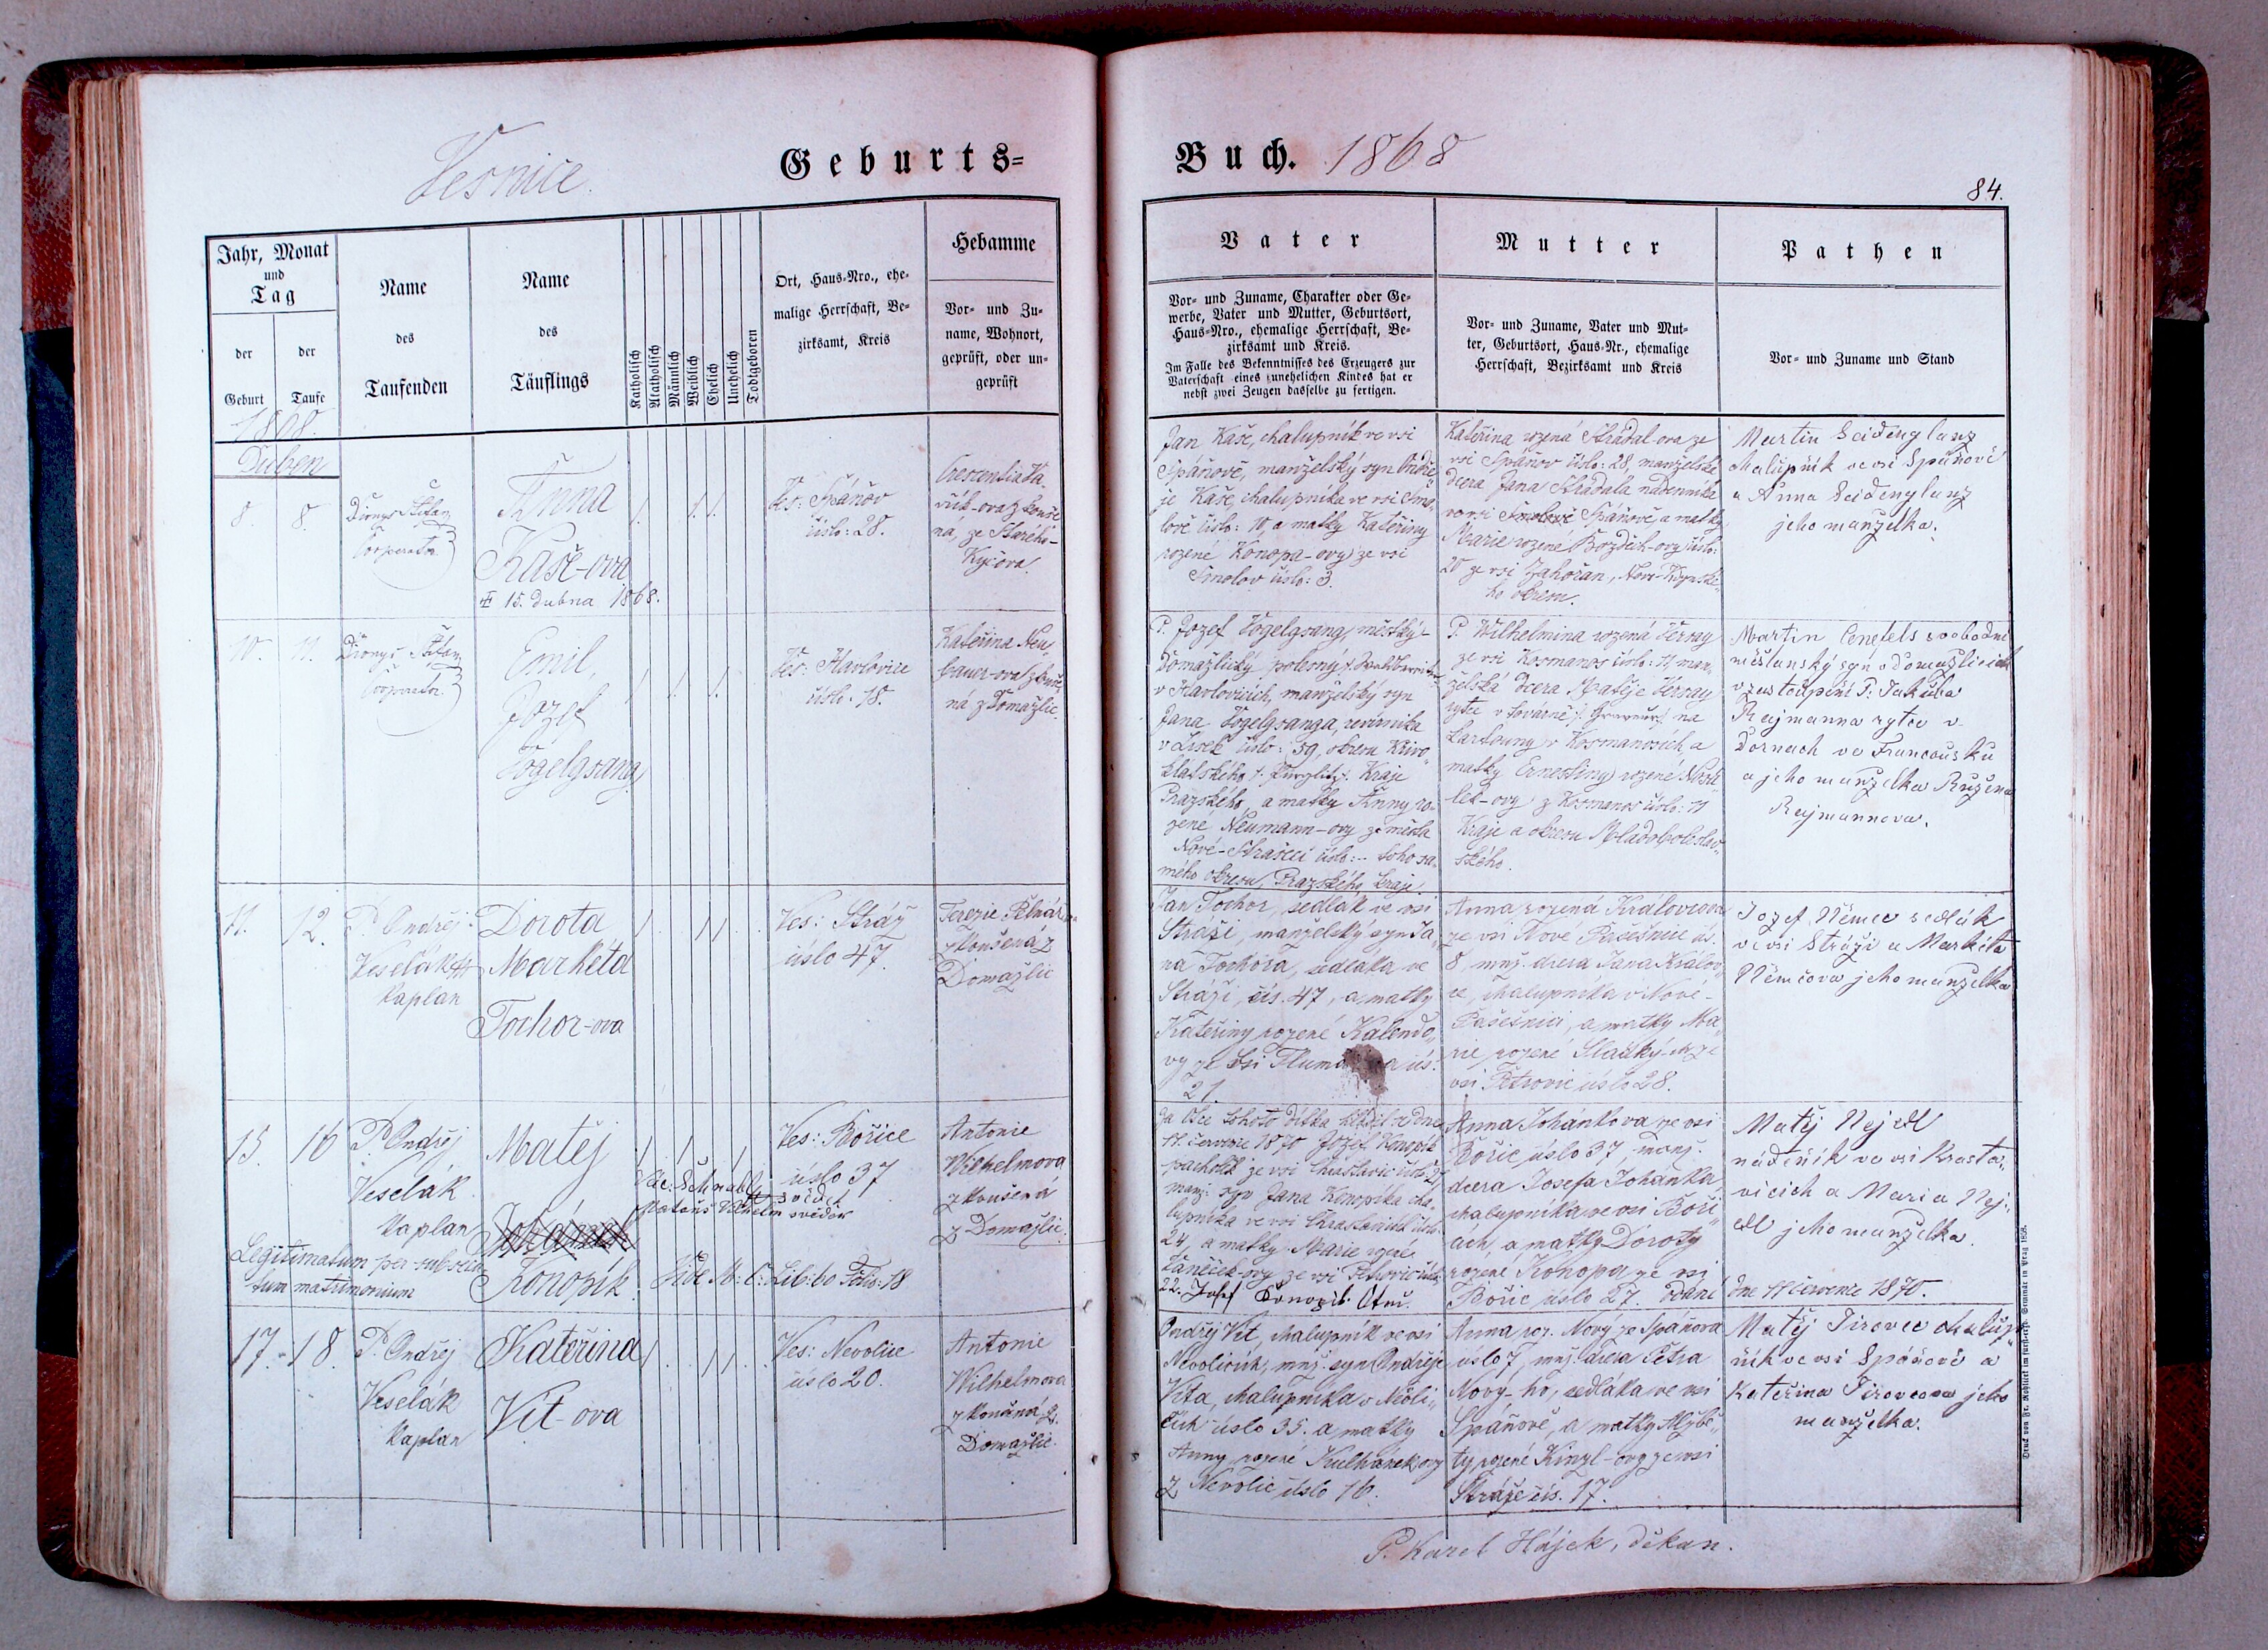 Vesnice.
Geburts=
Buch. 1868
84.
Jahr, Monat
und
Tag
der
Geburt
der
Taufe
Name
des
Taufenden
Name
des
Täuflings
Katholisch
Akatholisch
Männlich
Weiblich
Ehelich
Unehelich
Todtgeboren
Ort, Haus-Nro., ehe-
malige Herrschaft, Be-
zirksamt, Kreis
Hebamme
Vor- und Zu-
name, Wohnort,
geprüft, oder un-
geprüft
Vater
Vor- und Zuname, Charakter oder Ge-
werbe, Vater und Mutter, Geburtsort,
Haus-Nro., ehemalige Herrschaft, Be-
zirksamt und Kreis.
Im Falle des Bekenntnisses des Erzeugers zur
Vaterschaft eines unehelichen Kindes hat er
nebst zwei Zeugen dasselbe zu fertigen.
Mutter
Vor- und Zuname, Vater und Mut-
ter, Geburtsort, Haus-Nr., ehemalige
Herrschaft, Bezirksamt und Kreis
Pathen
Vor- und Zuname und Stand
1868.
Duben
8.
8.
Dionys Štefan
Cooperator
Anna
Kaše-ova
15. dubna 1868.
Ves: Spáňov
číslo: 28.
Crescentia
zkouše
ná, ze Starého-
Kyčova.
Jan Kaše, chalupník ve vsi
Spáňově, manželský syn Ondře
je Kaše, chalupníka ve vsi Smo-
lově číslo: 10, a matky Kateřiny
rozené Konopa-ovy ze vsi
Smolov číslo: 3.
Kateřina rozená Strádal-ova ze
vsi Spáňov číslo: 28, manželská
dcera Jana Strádala nádenníka
ve vsi Spáňově, a matky
Marie rozené Bozděch-ovy číslo:
20 ze vsi Zahořan, Nov-Kdyňské-
ho okresu.
Martin Seidenglanz
chalupník ve vsi Spáňově
a Anna Seidenglanz
jeho manželka.
10.
11.
Dionys Štefan
Cooperator
Emil,
Jozef
Vogelgsang
Ves: Havlovice
číslo: 18.
Kateřina Neu-
bauer-ova zkouše-
ná z Domažlic.
P. Jozef Vogelgsang, městský
Domažlický polesný
v Havlovicích, manželský syn
Jana Vogelgsanga, revírníka
v číslo: 59, okresu Křivo-
klatského /: Pürglitz :/ Kraje
Pražského, a matky Anny ro-
zené Neumann-ovy ze města
Nové-Strašecí číslo: - toho sa-
mého okresu, Pražského kraje.
P. Wilhelmina rozená
ze vsi Kosmanos číslo: 11, man-
želská dcera Matěje
rytce v továrně na
kartouny v Kosmanosích a
matky Ernestiny rozené
lek-ovy z Kosmanos číslo: 11
Kraje a okresu Mladoboleslav-
ského.
Martin svobodní
měšťanský syn v Domažlicích
v zastoupení P: Jakuba
Rajmanna rytce v
Dornach ve Francousku
a jeho manželka Ružena
Rajmannova.
11.
12.
P. Ondřej
Veselák
Kaplan
Dorota
Markéta
Tochor-ova
Ves: Stráž
číslo 47.
Terezie
zkoušená z
Domažlic
Jan Tochor, sedlák ve vsi
Stráži, manželský syn Ja
na Tochora, sedláka ve
Stráži, čís. 47, a matky
Kateřiny rozené Kalendo
vy ze vsi čís:
21.
Anna rozená Královcova
ze vsi Nové Pasečnice čís.
8, mnž. dcera Jana Králov-
ce, chalupníka v Nové-
Pasečnici, a matky Ma
rie rozené Sladký-ovy ze
vsi Petrovic číslo 28.
Jozef Němec sedlák
ve vsi Stráži a Markéta
Němcova jeho manželka
15.
16
P. Ondřej
Veselák
Kaplan
Legitimatum per subsecu-
tum matrimonium
Matěj
Johánek
Konopík.
Vác: Schnabl svědek
Matouš Vilhelm svědek
Vide M: C: Lib: to Folio: 18
Ves: Bořice
číslo 37
Antonie
Wilhelmova
zkoušená
z Domažlic.
Za Otce tohoto dítka hlásil se dne
11. července 1870 Jozef Konopík
pacholek ze vsi číslo 24
manž. syn Jana Konopíka cha-
lupníka ve vsi číslo
24, a matky Marie rozené
Janeček-ovy ze vsi Petrovic číslo
22. Josef Konopík Otec.
Anna Johánkova ze vsi
Bořic číslo 37, manž.
dcera Josefa Johánka
chalupníka ve vsi Boři-
cích, a matky Doroty
rozené Konopa ze vsi
Bořic číslo 27. Dání
Matěj Nejedl
nádeník ve vsi
vicích a Maria Nej-
edl jeho manželka.
dne 11 července 1870.
17.
18.
P. Ondřej
Veselák
Kaplan
Kateřina
Vít-ova
Ves: Nevolice
číslo 20.
Antonie
Wilhelmova
zkoušená z
Domažlic.
Ondřej Vít, chalupník ve vsi
Nevolicích, mnž. syn Ondřeje
Víta, chalupníka v Nevoli-
cích číslo 35. a matky
Anny rozené Kulhánek-ovy
z Nevolic číslo 16.
Anna roz. Nový ze Spáňova
číslo 7, mnž. dcera Petra
Nový-ho, sedláka ve vsi
Spáňově, a matky Alžbě-
ty rozené Kinzl-ovy ze vsi
Stráže čís. 17.
Matěj Tirovec chalup-
ník ve vsi Spáňově a
Kateřina Tirovcova jeho
manželka.
P. Karel Hájek, děkan.